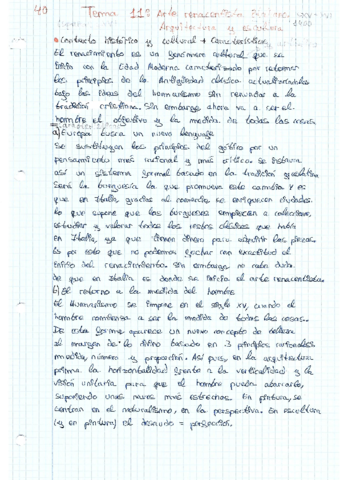 40
Tema 11: Arte renacentista
Arquitectura y escultura
• Contexto histórico y cultural + Características
El renacimiento es un fenómeno cultural que se
inicia con la Edad Moderna caracterizado por retomar
los principios de la Antigüedad clásica actualizándolos
bajo las ideas del humanismo sin renunciar a la
tradición cristiana. Sin embargo ahora va a ser el
hombre el objetivo y la medida de todas las cosas
a) Europa busca un nuevo lenguaje
Se sustituyen los principios del gótico por un
pensamiento más racional y más crítico. Se instaura
así un sistema formal basado en la tradición grecolatina
Será la burguesía la que promueva este cambio y es
que en Italia gracias al comercio se enriquecen ciudades
lo que supone que los burgueses empiecen a coleccionar,
estudiar y valorar todos los restos clásicos que había
en Italia, ya que tienen dinero para adquirir las piezas.
Es por esto que no podemos fechar con exactitud el
inicio del renacimiento. Sin embargo, no cabe duda
de que en Italia es donde se inicia el arte renacentista.
b) El retorno a la medida del hombre
El Humanismo se impone en el siglo XV, cuando el
hombre comienza a ser la medida de todas las cosas.
De esta forma aparece un nuevo concepto de belleza
al margen de lo divino basado en 3 principios racionales:
medida, número y proporción. Así pues, en la arquitectura
prima la horizontalidad frente a la verticalidad y la
visión unitaria para que el hombre pueda abarcarlo,
suponiendo unas naves más estrechas. En pintura, se
centran en el naturalismo, en la perspectiva. En escultura
(y en pintura) el desnudo = perfección.